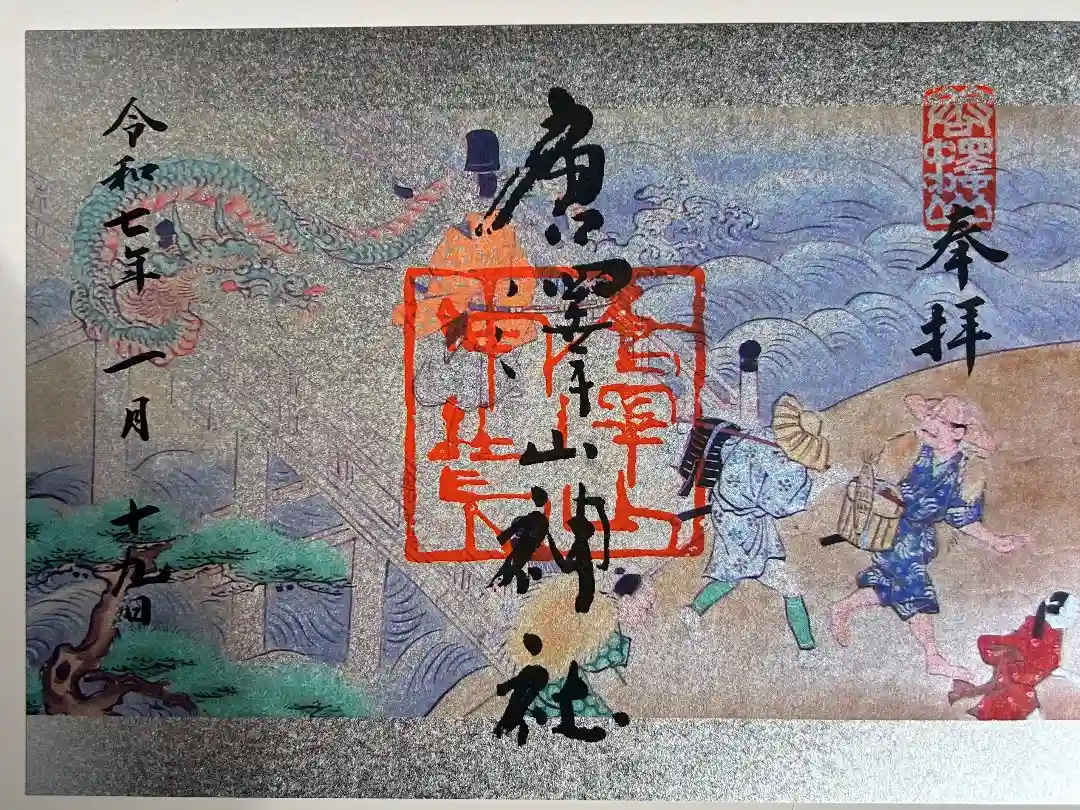 唐澤山
奉拝
唐澤山神社
令和七年一月十九日